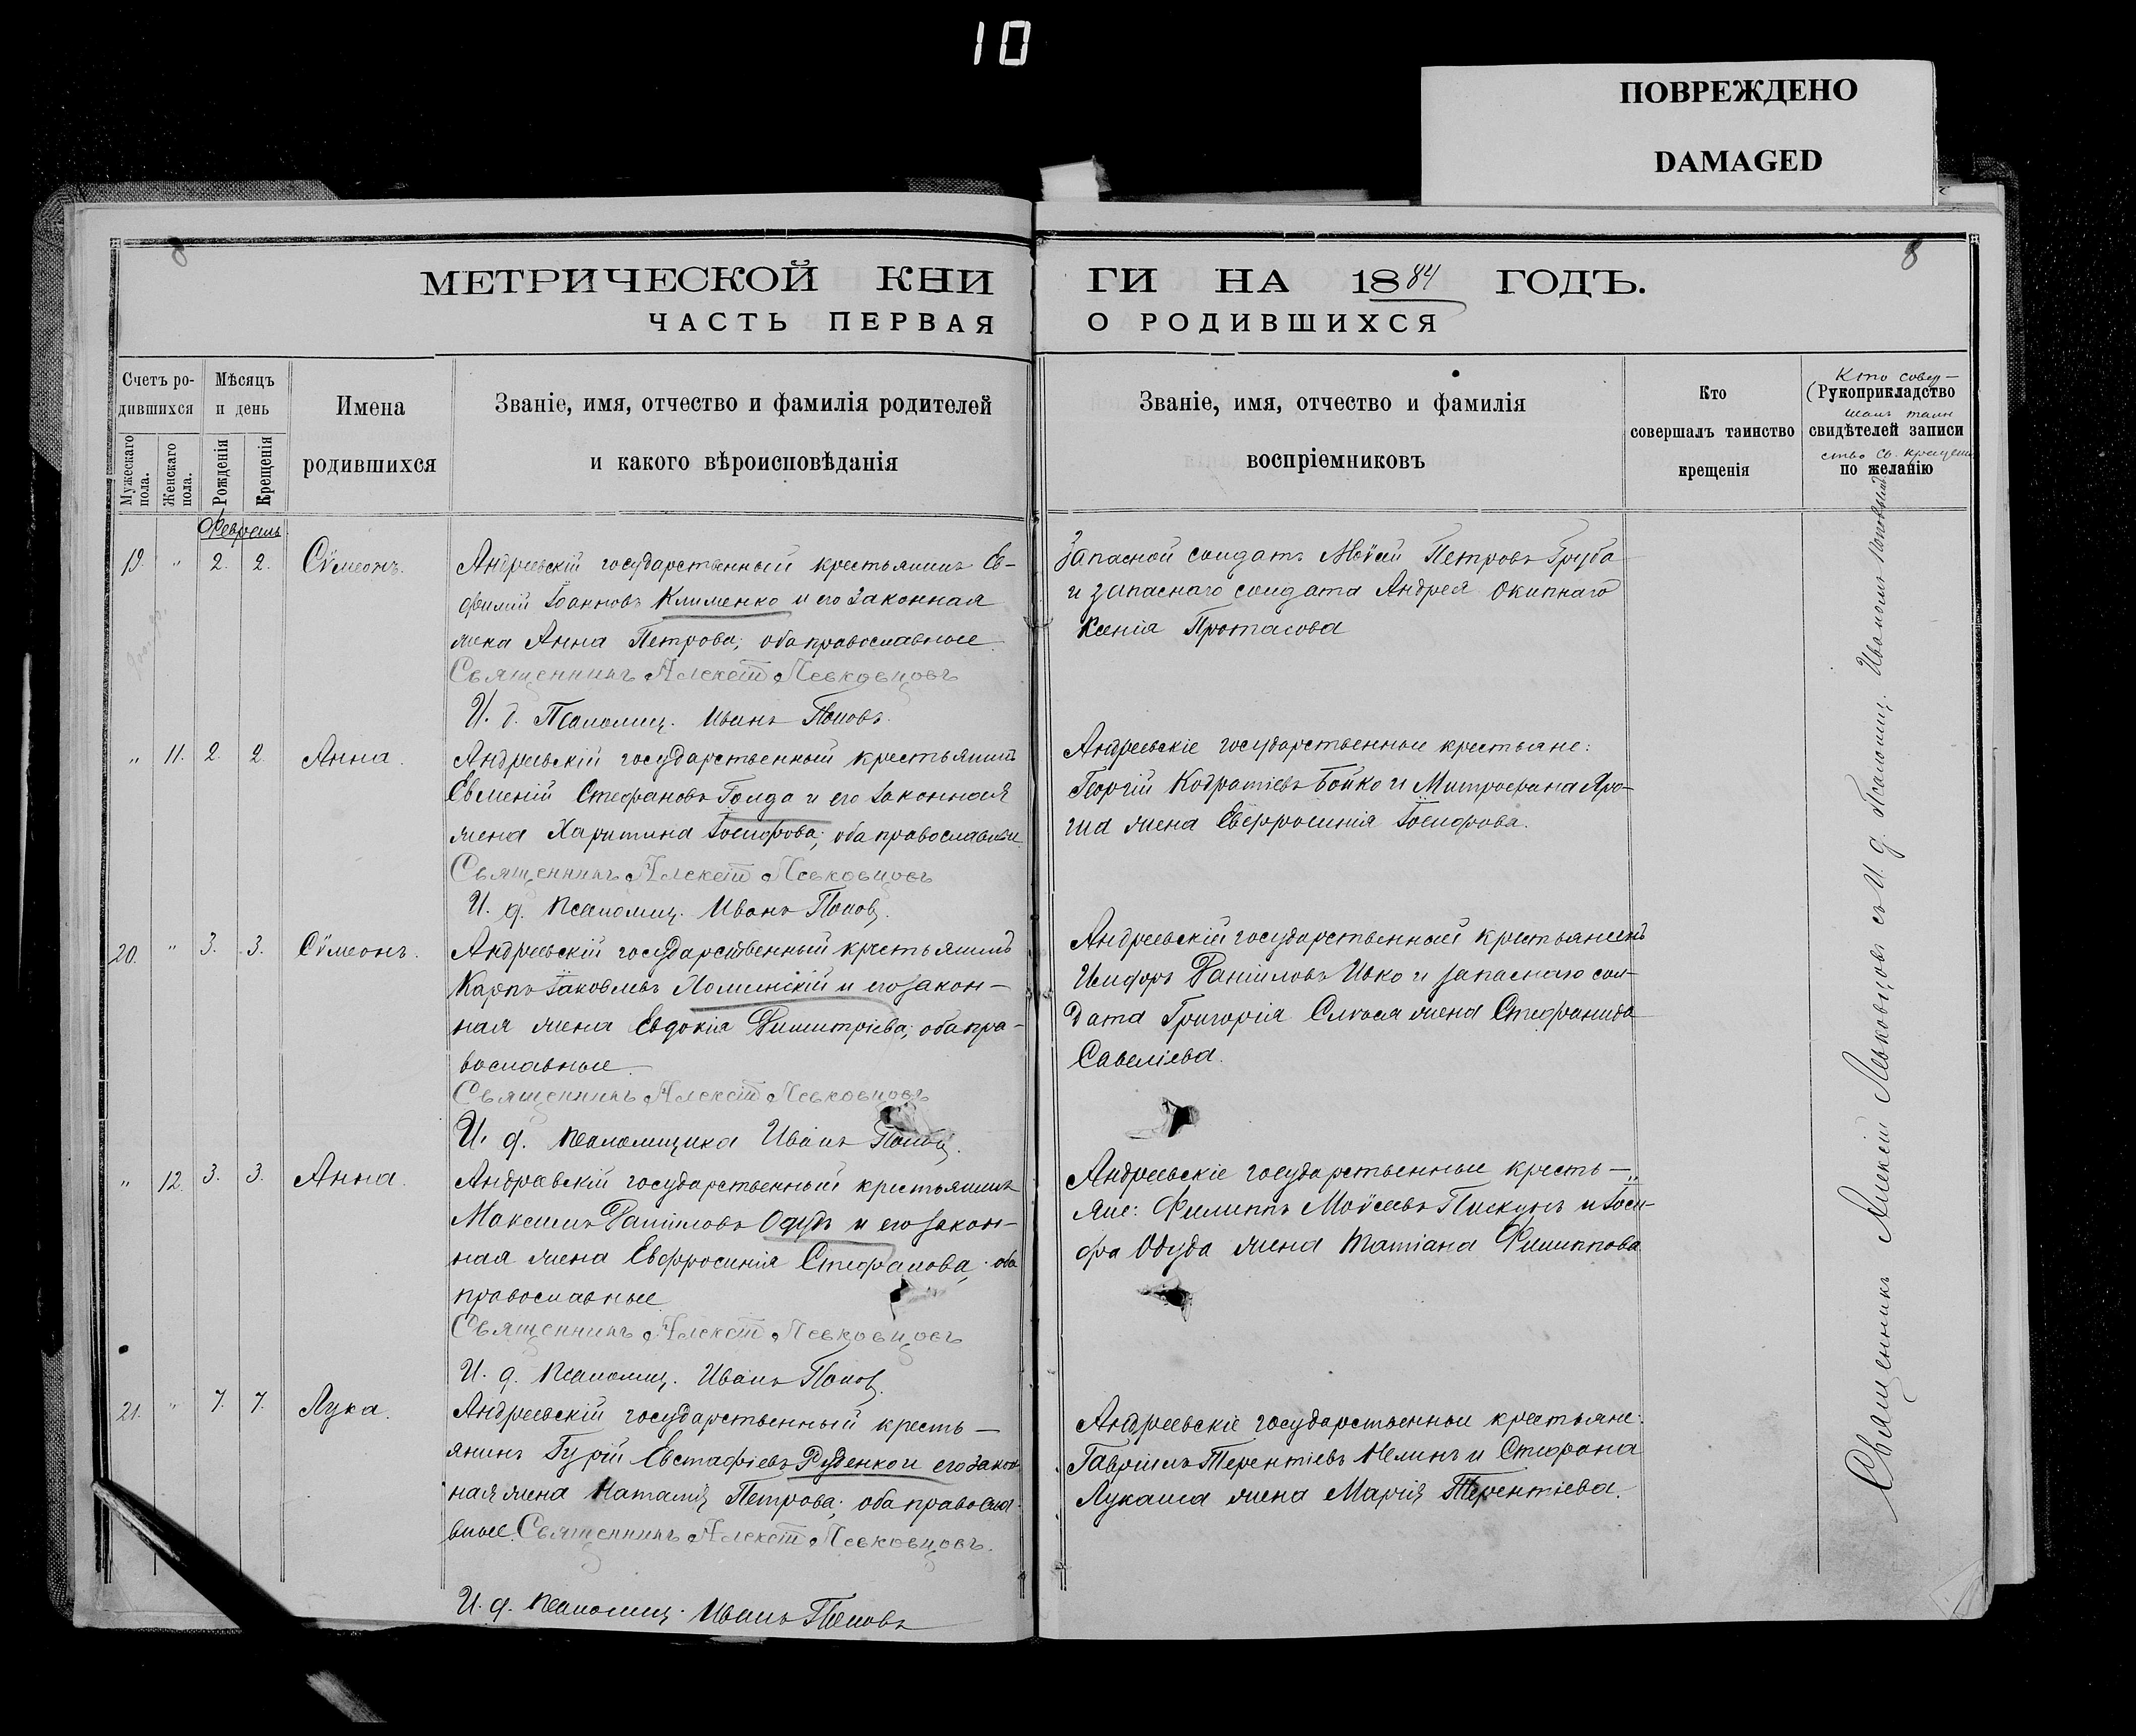 10
ПОВРЕЖДЕНО
DAMAGED
8
8
МЕТРИЧЕСКОЙ КНИ
ГИ НА 1884 ГОДЪ.
ЧАСТЬ ПЕРВАЯ
О РОДИВШИХСЯ
Счетъ ро-
дившихся
Мужескаго
пола.
Женскаго
пола.
Мѣсяцъ
и день
Рожденія
Крещенія
Имена
родившихся
Званіе, имя, отчество и фамилія родителей
и какого вѣроисповѣданія
Званіе, имя, отчество и фамилія
воспріемниковъ
Кто
совершалъ таинство
крещенія
Кто совер-
(Рукоприкладство
шалъ таин
свидѣтелей записи
ство Св. крещенія
по желанію
Февраль.
19. " 2. 2. Сѵмеонъ.
Андреевскій государственный крестьянинъ Ев-
фимій Іоанновъ Клименко и его законная
жена Анна Петрова; оба православные.
Священникъ Алексій Левковцовъ
И. д. Псаломщ. Иванъ Поповъ.
Запасной солдатъ Моѵсей Петровъ Груба
и запаснаго солдата Андрея Окипнаго
Ксенія Протасова
" 11. 2. 2. Анна.
Андреевскій государственный крестьянинъ
Евменій Стефановъ Голда и его законная
жена Харитина Іосифова; оба православные.
Священникъ Алексій Левковцовъ
И. д. псаломщ. Иванъ Поповъ.
Андреевскіе государственные крестьяне:
Георгій Кодратіевъ Бойко и Митрофана
жена Евфросинія Іосифова.
20. " 3. 3. Сѵмеонъ.
Андреевскій государственный крестьянинъ
Карпъ Іаковлевъ Ломинскій и его закон-
ная жена Евдокія Димитріева; оба пра-
вославные.
Священникъ Алексій Левковцовъ
И. д. псаломщика Иванъ Поповъ.
Андреевскій государственный крестьянинъ
Даніиловъ Ивко и запаснаго сол-
дата Григорія жена Стефанида
Савеліева.
" 12. 3. 3. Анна.
Андреевскій государственный крестьянинъ
Максимъ Даніиловъ Одудъ и его закон-
ная жена Евфросинія Стефанова; оба
православные.
Священникъ Алексій Левковцовъ
И. д. псаломщ. Иванъ Поповъ.
Андреевскіе государственные кресть-
яне: Филиппъ Моѵсеевъ Пискунъ и Іоси-
фа Одуда жена Татіана Филиппова
21. " 7. 7. Лука.
Андреевскій государственный кресть-
янинъ Гурій Евстафіевъ Руденко и его закон-
ная жена Наталія Петрова; оба правосла-
вные. Священникъ Алексій Левковцовъ.
И. д. псаломщ. Иванъ Поповъ
Андреевскіе государственные крестьяне:
Гавріилъ Терентіевъ и Стефана
Лукаша жена Марія Терентіева.
Священникъ Алексій Левковцовъ съ И. д. Псаломщ. Иваномъ Поповымъ